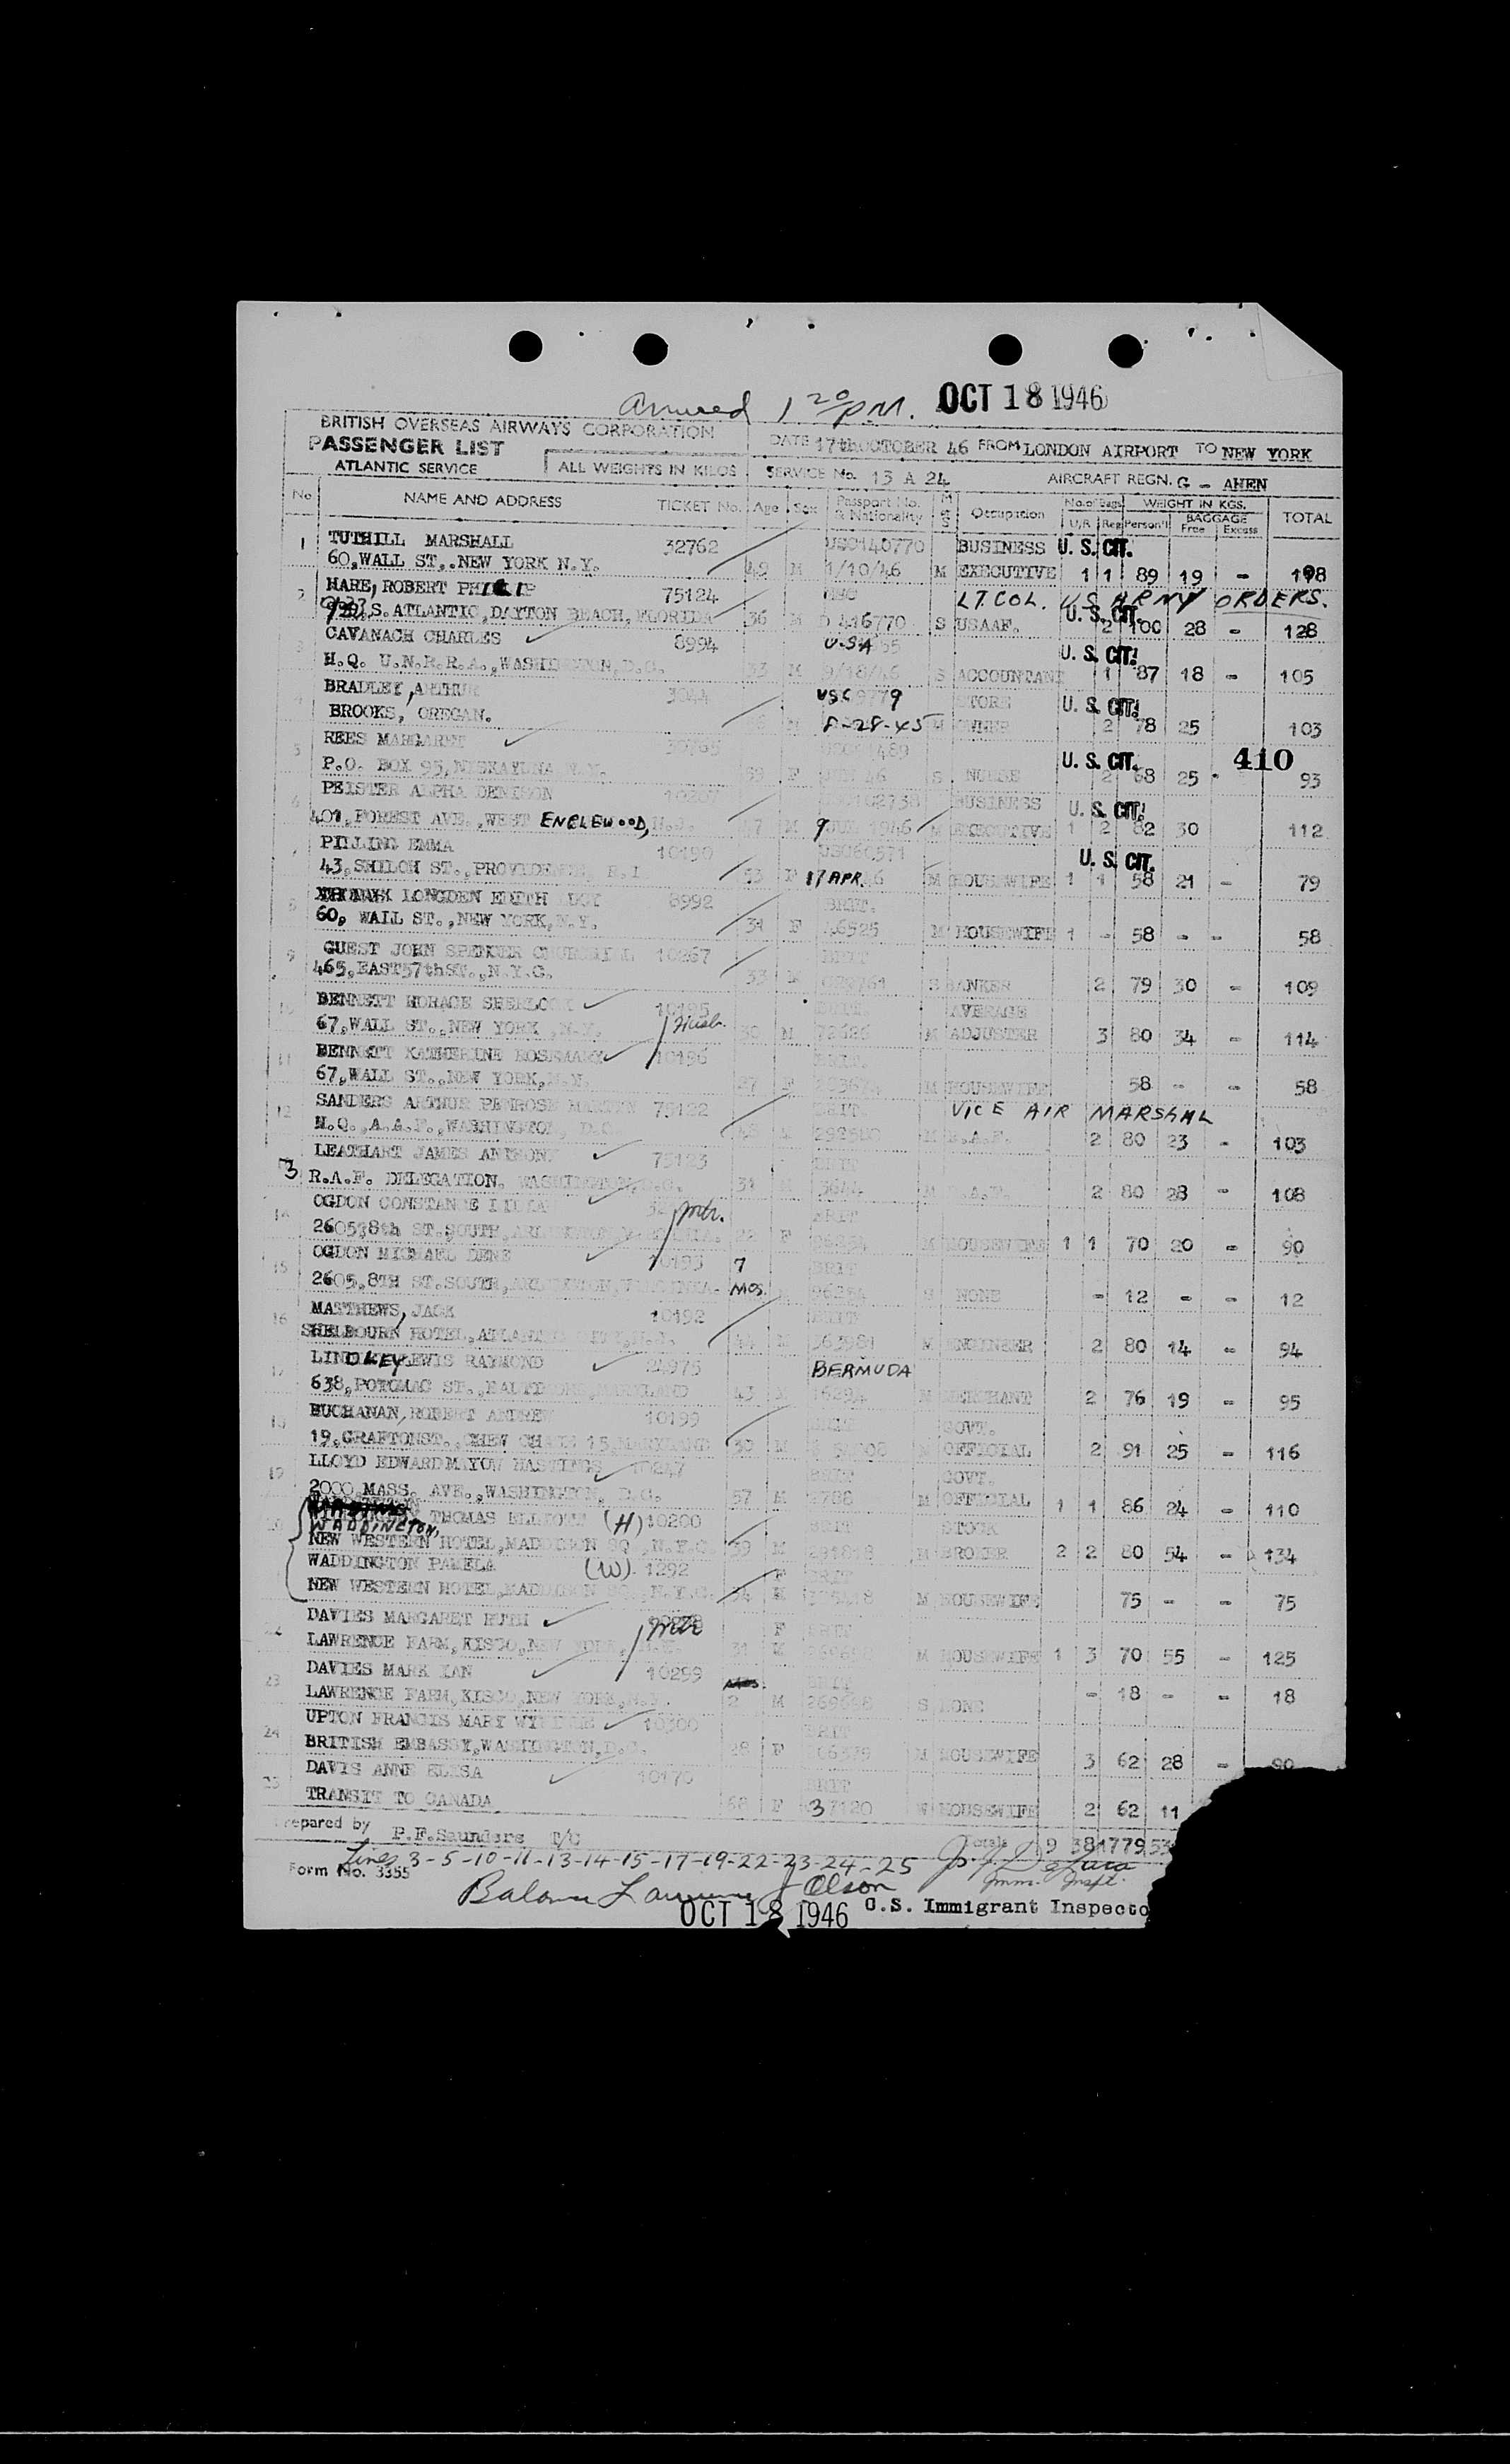 Arrived 1 20/PM. OCT 18 1946
BRITISH OVERSEAS AIRWAYS CORPORATION
PASSENGER LIST DATE 17th OCTOBER 46 FROM LONDON AIRPORT TO NEW YORK
ATLANTIC SERVICE ALL WEIGHTS IN KILOS SERVICE No. 13 A 24 AIRCRAFT REGN. G - AHEN
No NAME AND ADDRESS TICKET No. Age Sex Passport No. & Nationality M S Occupation No. of Bags U/R Reg WEIGHT IN KGS. Person'l BAGGAGE Free Excess TOTAL
1 TUTHILL MARSHALL 32762 USC140770 BUSINESS U. S. CIT.
60,WALL ST,.NEW YORK N.Y. 49 M 1/10/46 M EXECUTIVE 1 1 89 19 -
2 MARE, ROBERT PHILIP 75124 LT. COL. U.S. ARMY ORDERS.
S.ATLANTIC,DAYTON BEACH,FLORIDA 36 M S USAAF. U. S. CIT. 2 100 28 - 128
3 CAVANACH CHARLES 8994 U.S.A U. S. CIT!
H.Q. U.N.R.R.A.,WASHINGTON,D.C. 33 M 9/18/46 S ACCOUNTANT 1 87 18 - 105
BRADLEY, ARTHUR 3044 USC STORE U. S. CIT!
BROOKS, OREGAN. M 8-28-45 M OWNER 2 78 25 103
5 REES MARGARET U. S. CIT. 410
P.O. BOX 95,NISKAYUNA N.Y. 59 F JUN 46 S NURSE 2 68 25 93
PEISTER ALPHA DENISON BUSINESS U. S. CIT!
401,FOREST AVE.,WEST ENGLEWOOD,N.J. M 9 JUL 1946 M EXECUTIVE 1 2 82 30 112
PILLING EMMA 10190 U. S. CIT.
43,SHILOH ST.,PROVIDENCE, R.I 53 F 17 APR. 46 M HOUSEWIFE 1 1 58 21 - 79
8 LONGDEN EDITH LUCY 8992 BRIT.
60, WALL ST.,NEW YORK,N.Y. 31 F 46525 M HOUSEWIFE 1 - 58 - - 58
9 GUEST JOHN SPENCER CHURCHILL 10267 BRIT
465,EAST57thST.,N.Y.C. 33 M S BANKER 2 79 30 - 109
BENNETT HORACE SHERLOCK 10195 BRIT. AVERAGE
67,WALL ST.,NEW YORK ,N.Y. Husb. 30 M 72626 M ADJUSTER 3 80 34 - 114
11 BENNETT KATHERINE ROSEMARY 10196 BRIT.
67,WALL ST.,NEW YORK,N.Y. 27 F M HOUSEWIFE 58 - - 58
12 SANDERS ARTHUR PENROSE MARTYN 75122 BRIT. VICE AIR MARSHAL
H.Q.,A.A.F.,WASHINGTON, D.C. M M R.A.F. 2 80 23 - 103
3 LEATHART JAMES ANTHONY 75123 BRIT
R.A.F. DELEGATION, WASHINGTON,D.C. 31 M M R.A.F. 2 80 28 - 108
14 OGDON CONSTANCE mtr. BRIT
260538th ST.SOUTH,ARLINGTON,VIRGINIA. 22 F M HOUSEWIFE 1 1 70 20 - 90
15 OGDON MICHAEL DENE 10193 7 BRIT
2605,8TH ST.SOUTH,ARLINGTON,VIRGINIA. Mos. S NONE - 12 - - 12
16 MATTHEWS, JACK 10192 BRIT
SHELBOURN HOTEL,ATLANTIC CITY,N.J. 44 M 363981 M ENGINEER 2 80 14 - 94
17 LINDLEY LEWIS RAYMOND 24975 BERMUDA
638,POTOMAC ST.,BALTIMORE,MARYLAND 43 M M MERCHANT 2 76 19 - 95
18 BUCHANAN, ROBERT ANDREW 10199 BRIT GOVT.
19,GRAFTONST.,CHEVY CHASE 15,MARYLAND 30 M OFFICIAL 2 91 25 - 116
19 LLOYD EDWARD MAYOW HASTINGS 10247 BRIT GOVT.
2000 MASS. AVE.,WASHINGTON, D.C. 57 M M OFFICIAL 1 1 86 24 - 110
WADDINGTON, THOMAS ELLIOTT (H) 10200 BRIT STOCK
NEW WESTERN HOTEL,MADDISON SQ ,N.Y.C. 39 M M BROKER 2 2 80 54 - 134
WADDINGTON PAMELA (W) 1292 F BRIT
NEW WESTERN HOTEL,MADDISON SQ ,N.Y.C. 34 M HOUSEWIFE 75 - - 75
DAVIES MARGARET RUTH mtr F BRIT
LAWRENCE FARM,KISCO,NEW YORK, 31 M HOUSEWIFE 1 3 70 55 - 125
23 DAVIES MARK IAN 10299 BRIT
LAWRENCE FARM,KISCO,NEW YORK,N.Y. 2 M 269698 S NONE - 18 - - 18
24 UPTON FRANCIS MARY 10300 BRIT
BRITISH EMBASSY,WASHINGTON,D.C. 28 F M HOUSEWIFE 3 62 28 - 90
25 DAVIS ANNE ELISA 10175 BRIT
TRANSIT TO CANADA 68 F 37120 W HOUSEWIFE 2 62 11
Prepared by P.F.Saunders T/C Totals 9 38 1779 53
Lines 3-5-10-11-13-14-15-17-19-22-23-24-25
Form No. 3355 Imm. Inspt.
Balance Olson
OCT 18 1946 U.S. Immigrant Inspecto